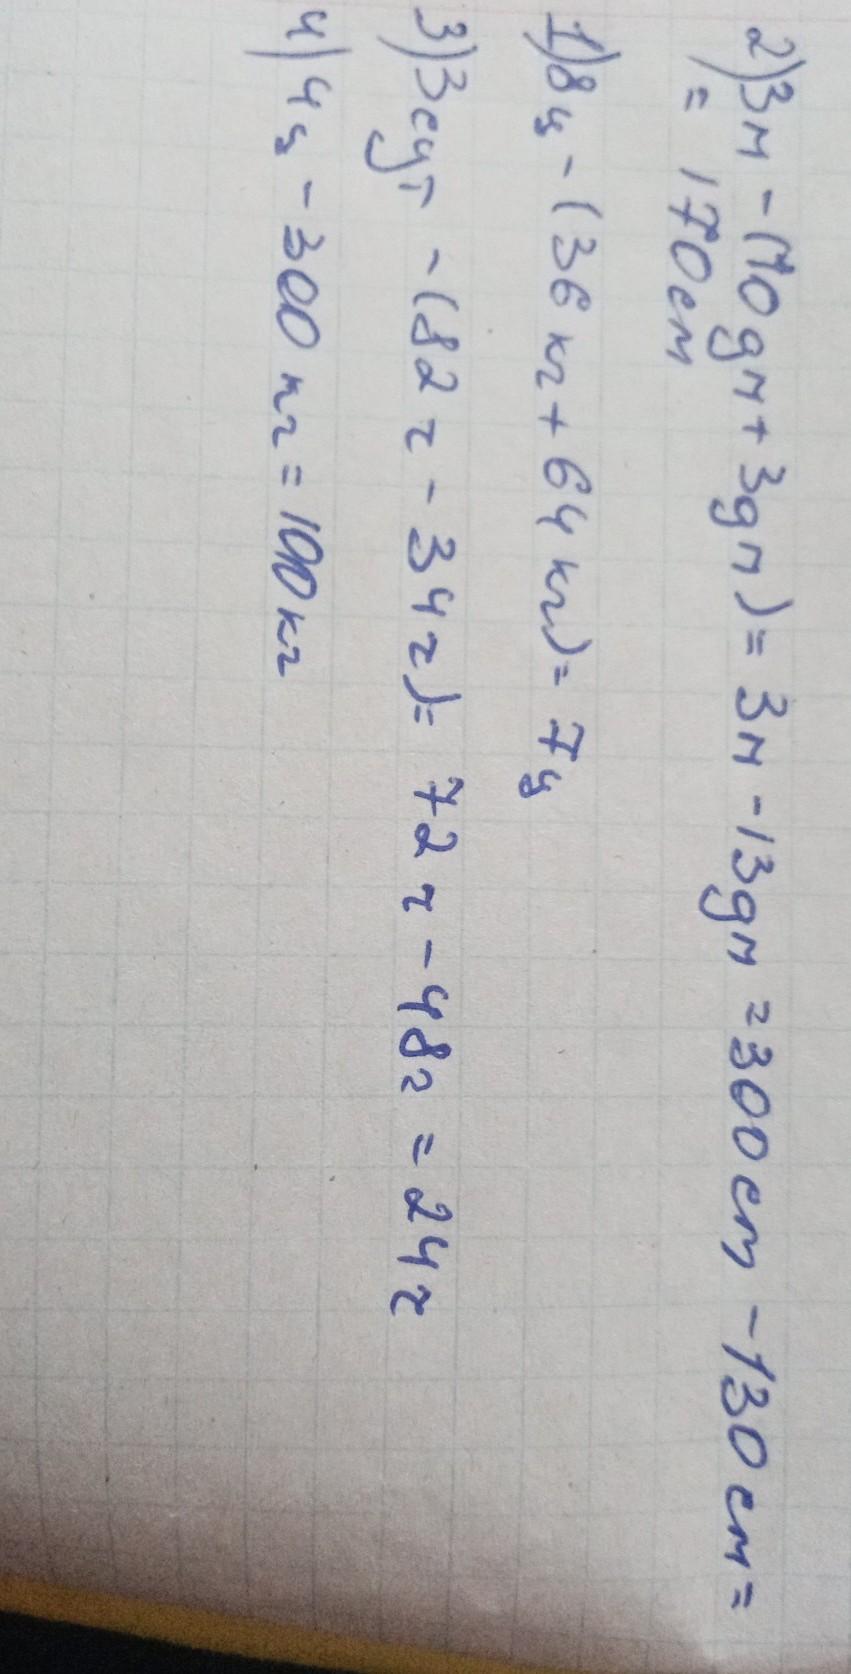 2) 3м - (10дм + 3дм) = 3м - 13дм = 300см - 130см =
= 170см
1) 8ц - (36 кг + 64 кг) = 7ц
3) 3сут - (82ч - 34ч) = 72ч - 48ч = 24ч
4) 4ц - 300 кг = 100кг